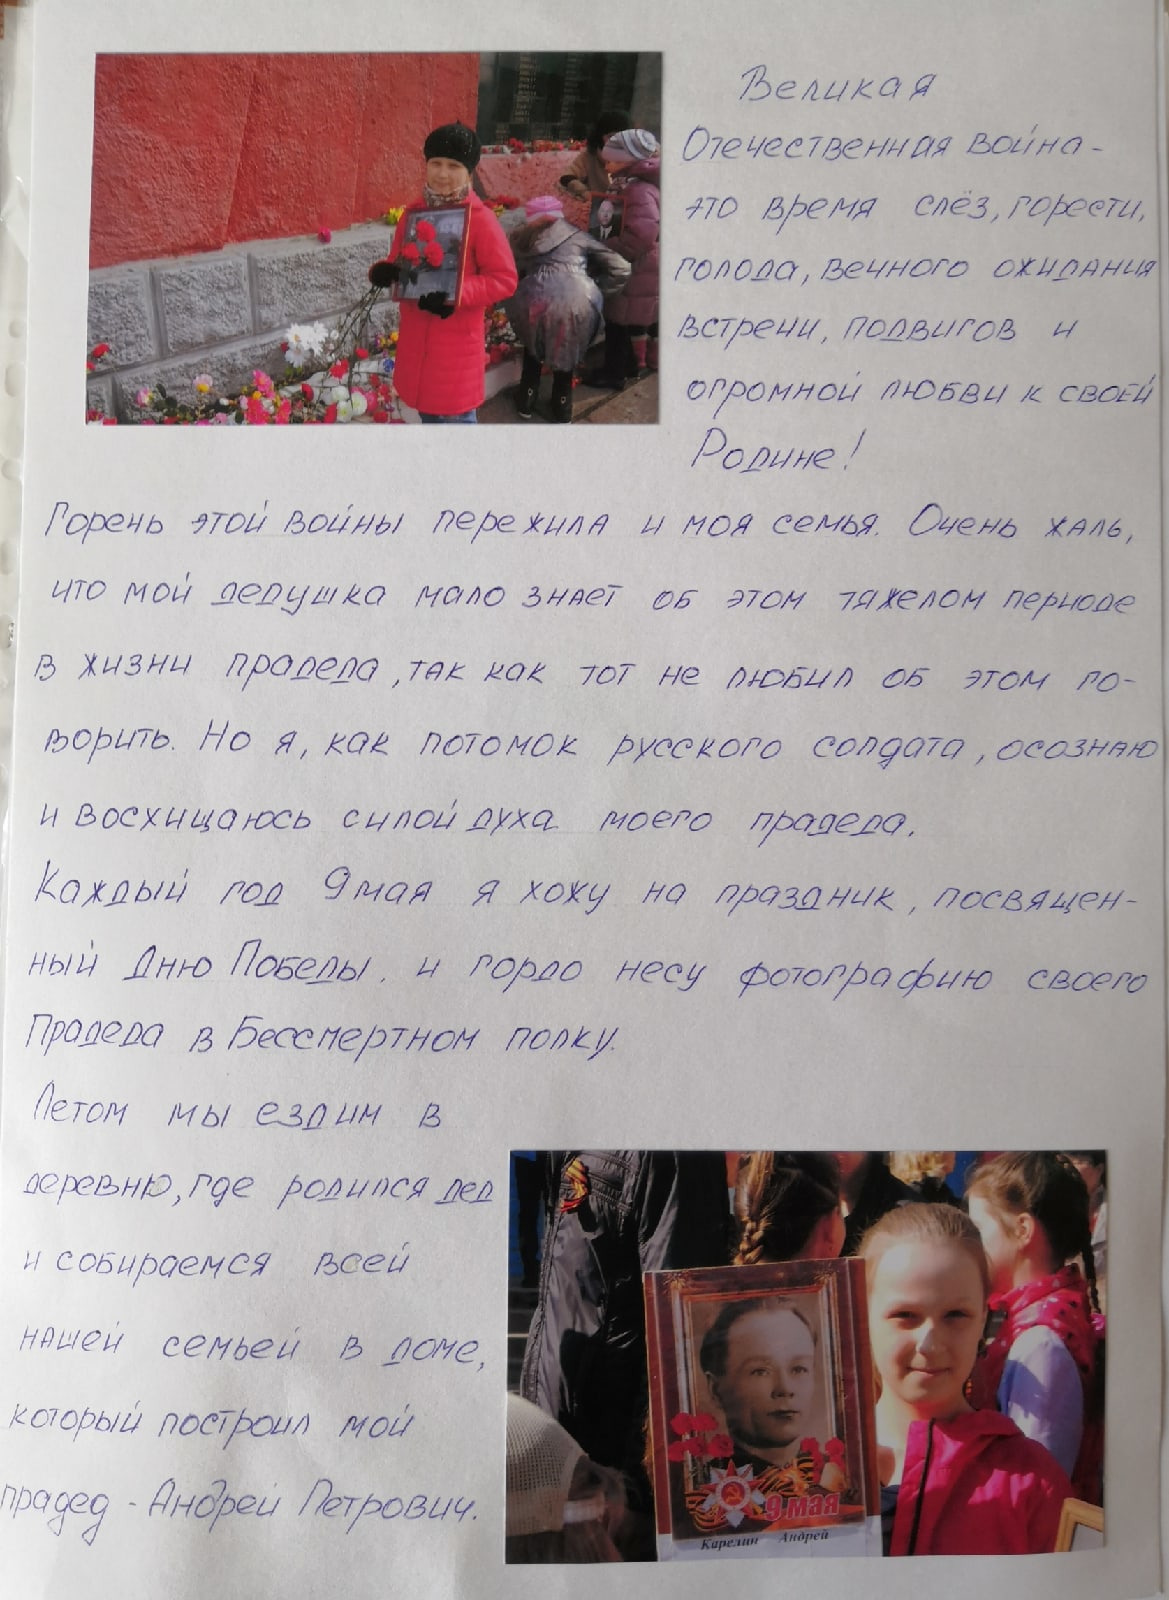 Великая
Отечественная война -
это время слёз, горести,
голода, вечного ожидания
встречи, подвигов и
огромной любви к своей
Родине!
Горечь этой войны пережила и моя семья. Очень жаль,
что мой дедушка мало знает об этом тяжелом периоде
в жизни прадеда, так как тот не любил об этом го-
ворить. Но я, как потомок русского солдата, осознаю
и восхищаюсь силой духа моего прадеда.
Каждый год 9 мая я хожу на праздник, посвящен-
ный Дню Победы. и гордо несу фотографию своего
Прадеда в Бессмертном полку.
Летом мы ездим в
деревню, где родился дед
и собираемся всей
нашей семьей в доме,
который построил мой
прадед - Андрей Петрович.
9 мая
Карелин Андрей